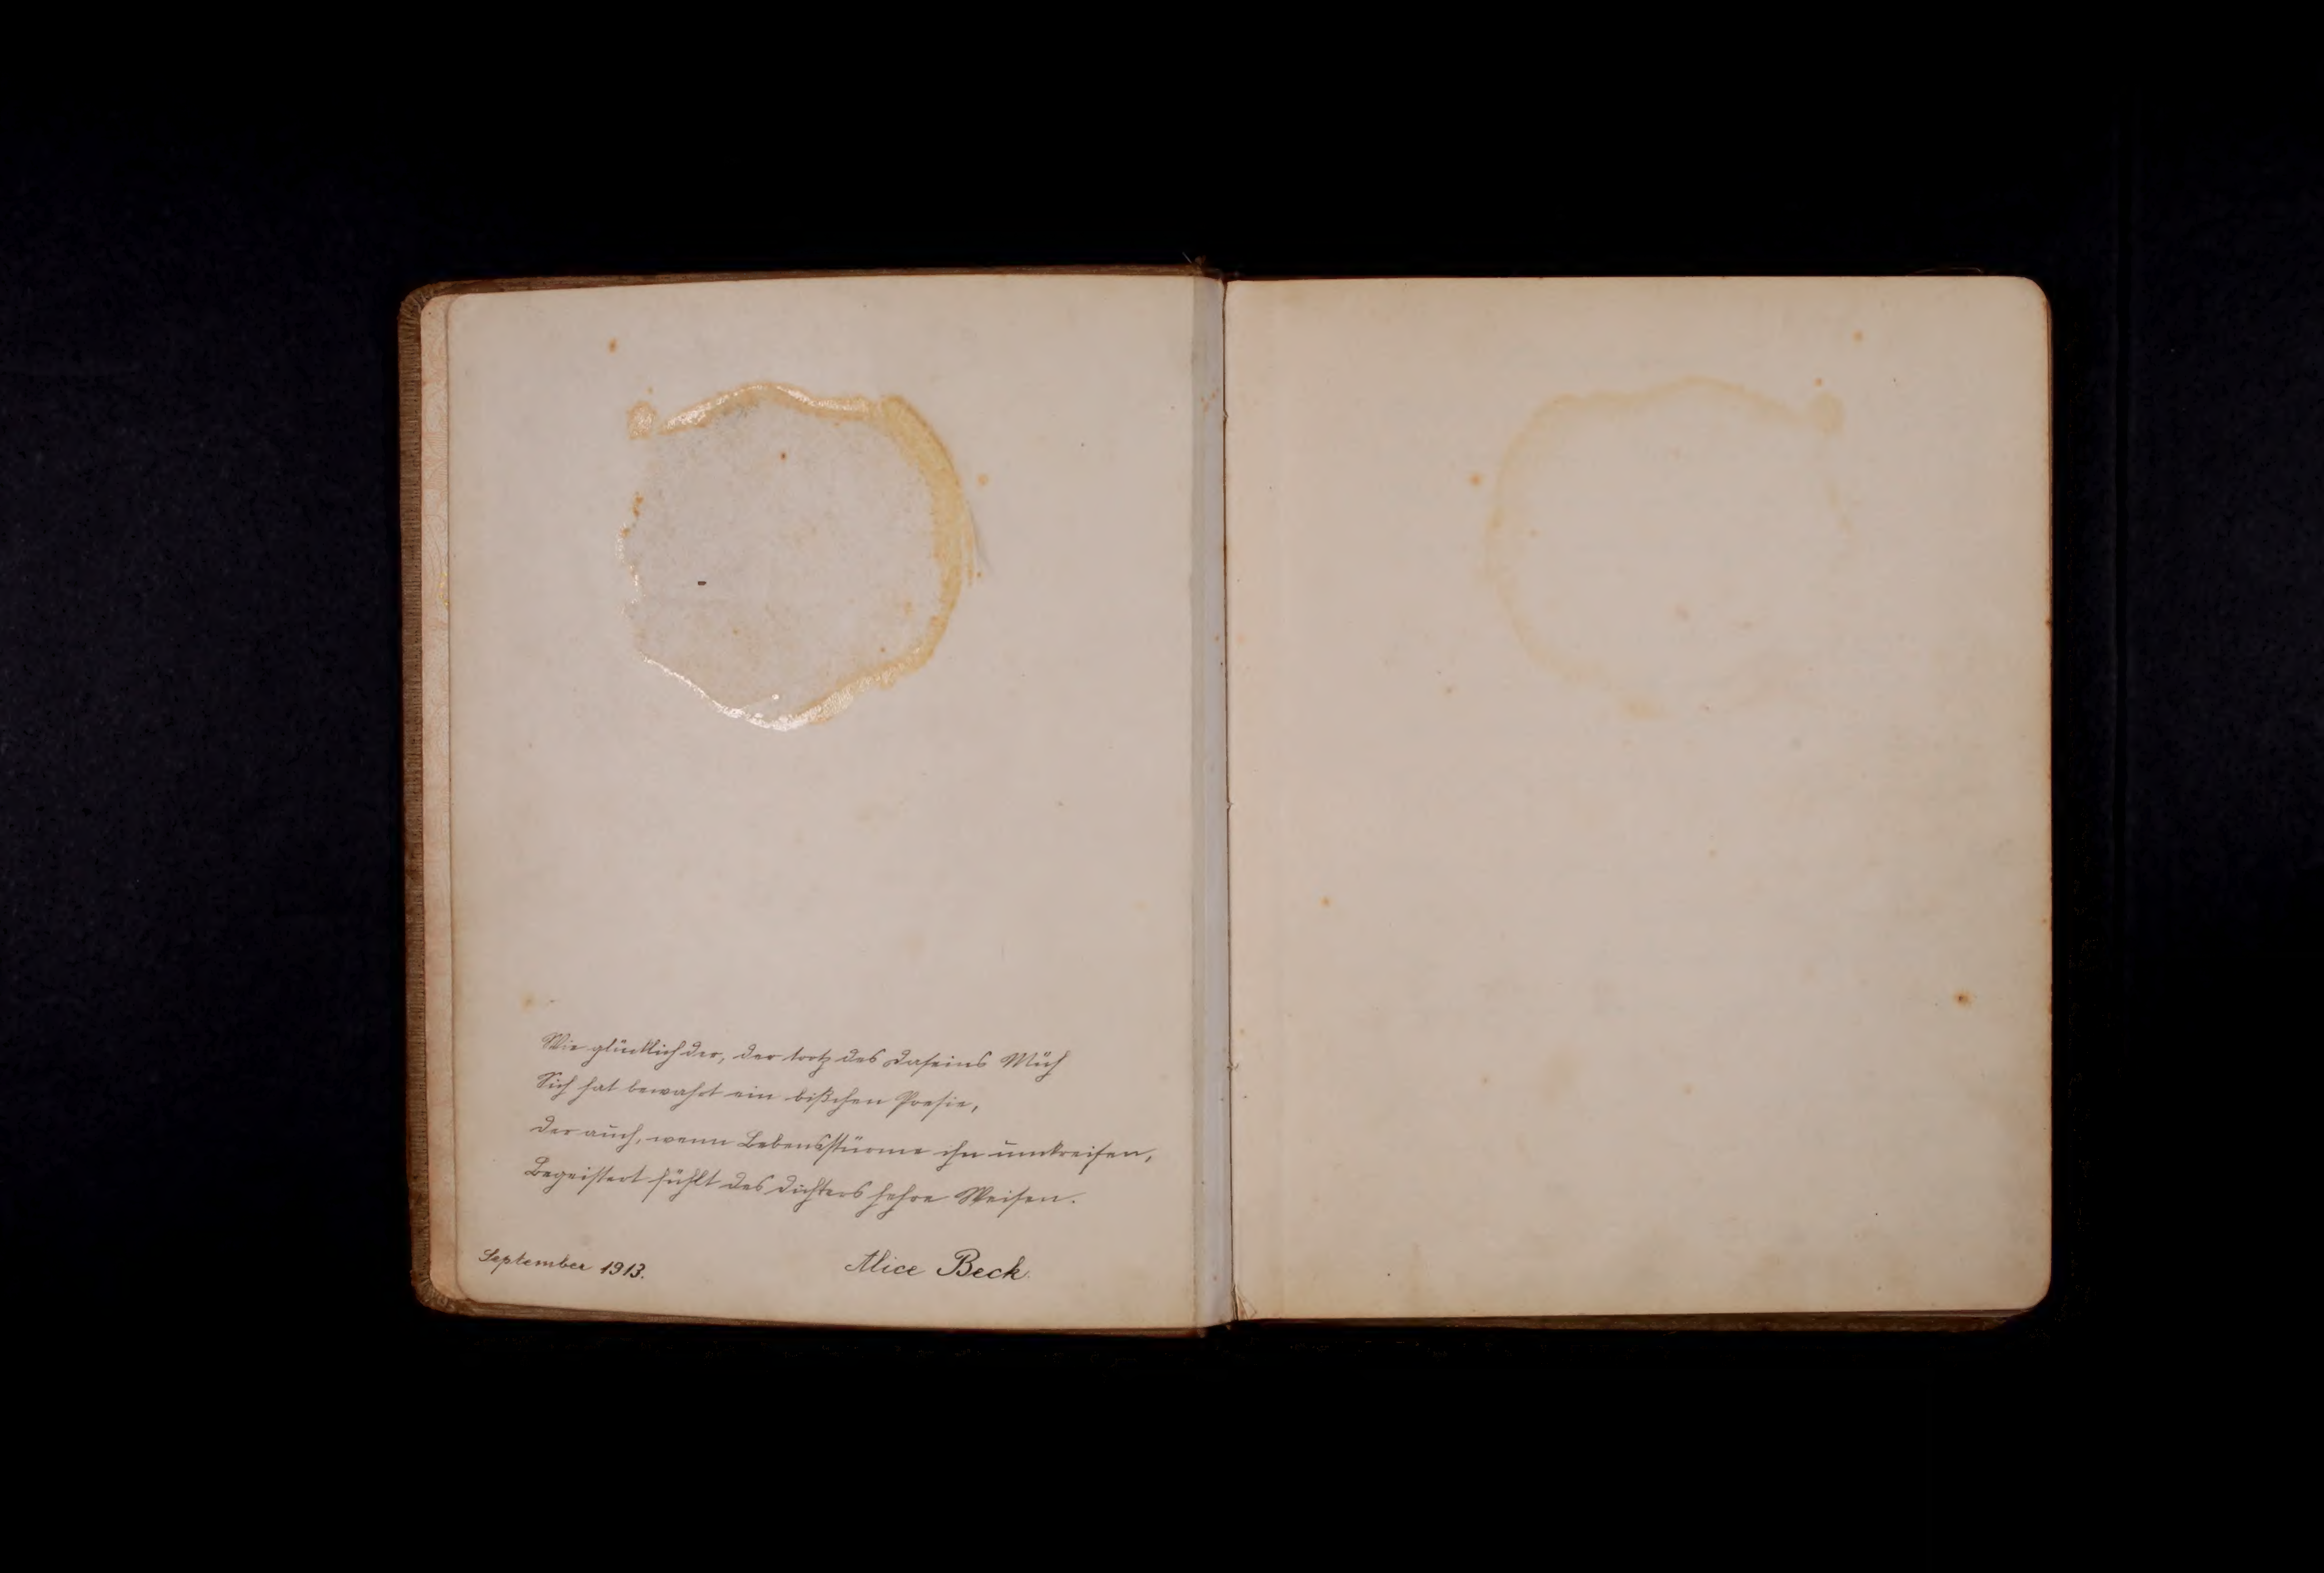 Wie glücklich der, der trotz des Daseins Müh
Sich hat bewahrt ein bißchen Poesie,
Der auch, wenn Lebensstürme ihn umkreisen,
Begeistert fühlt des Dichters hehre Weisen.
September 1913. Alice Beck.